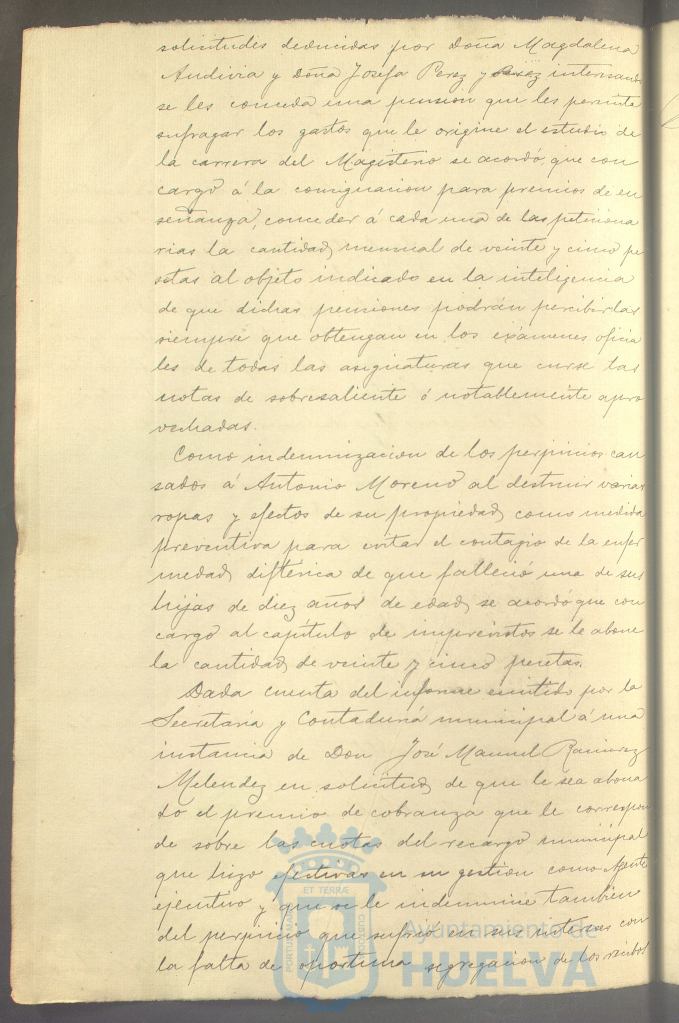 solicitudes deducidas por Doña Magdalena
Andivia y Doña Josefa Perez y Perez interesando
se les conceda una pension que les permita
sufragar los gastos que le origine el estudio de
la carrera del Magisterio se acordó, que con
cargo á la consignacion para premios de en
señanza, conceder á cada una de las peticiona
rias la cantidad mensual de veinte y cinco pe
setas al objeto indicado en la inteligencia
de que dichas pensiones podrán percibirlas
siempre que obtengan en los exámenes oficia
les de todas las asignaturas que curse las
notas de sobresaliente ó notablemente apro
vechadas.
Como indemnizacion de los perjuicios cau
sados á Antonio Moreno al destruir varias
ropas y efectos de su propiedad como medida
preventiva para evitar el contagio de la enfer
medad diftérica de que falleció una de sus
hijas de diez años de edad, se acordó que con
cargo al capítulo de imprevistos se le abone
la cantidad de veinte y cinco pesetas.
Dada cuenta del informe emitido por la
Secretaría y Contaduría municipal á una
instancia de Don José Manuel Ramirez
Melendez en solicitud de que le sea abona
do el premio de cobranza que le correspon
de sobre las cuotas del recargo municipal
que hizo efectivas en su gestion como Agente
ejecutivo y que se le indemnice tambien
del perjuicio que sufrió en sus intereses con
la falta de oportuna segregacion de los recibos
ET TERRÆ
PORTUS MARIS
CUSTODIA
Ayuntamiento de
HUELVA